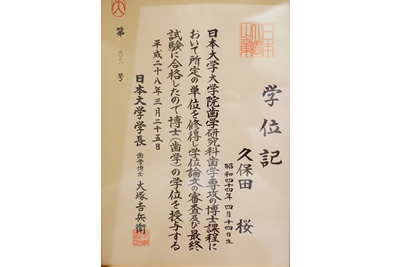 学位記
久保田 桜
昭和四十四年四月十四日生
日本大学大学院歯学研究科歯学専攻の博士課程に
おいて所定の単位を修得し学位論文の審査及び最終
試験に合格したので博士(歯学)の学位を授与する
平成二十八年三月二十五日
日本大学学長 歯学博士 大塚吉兵衛
第 号